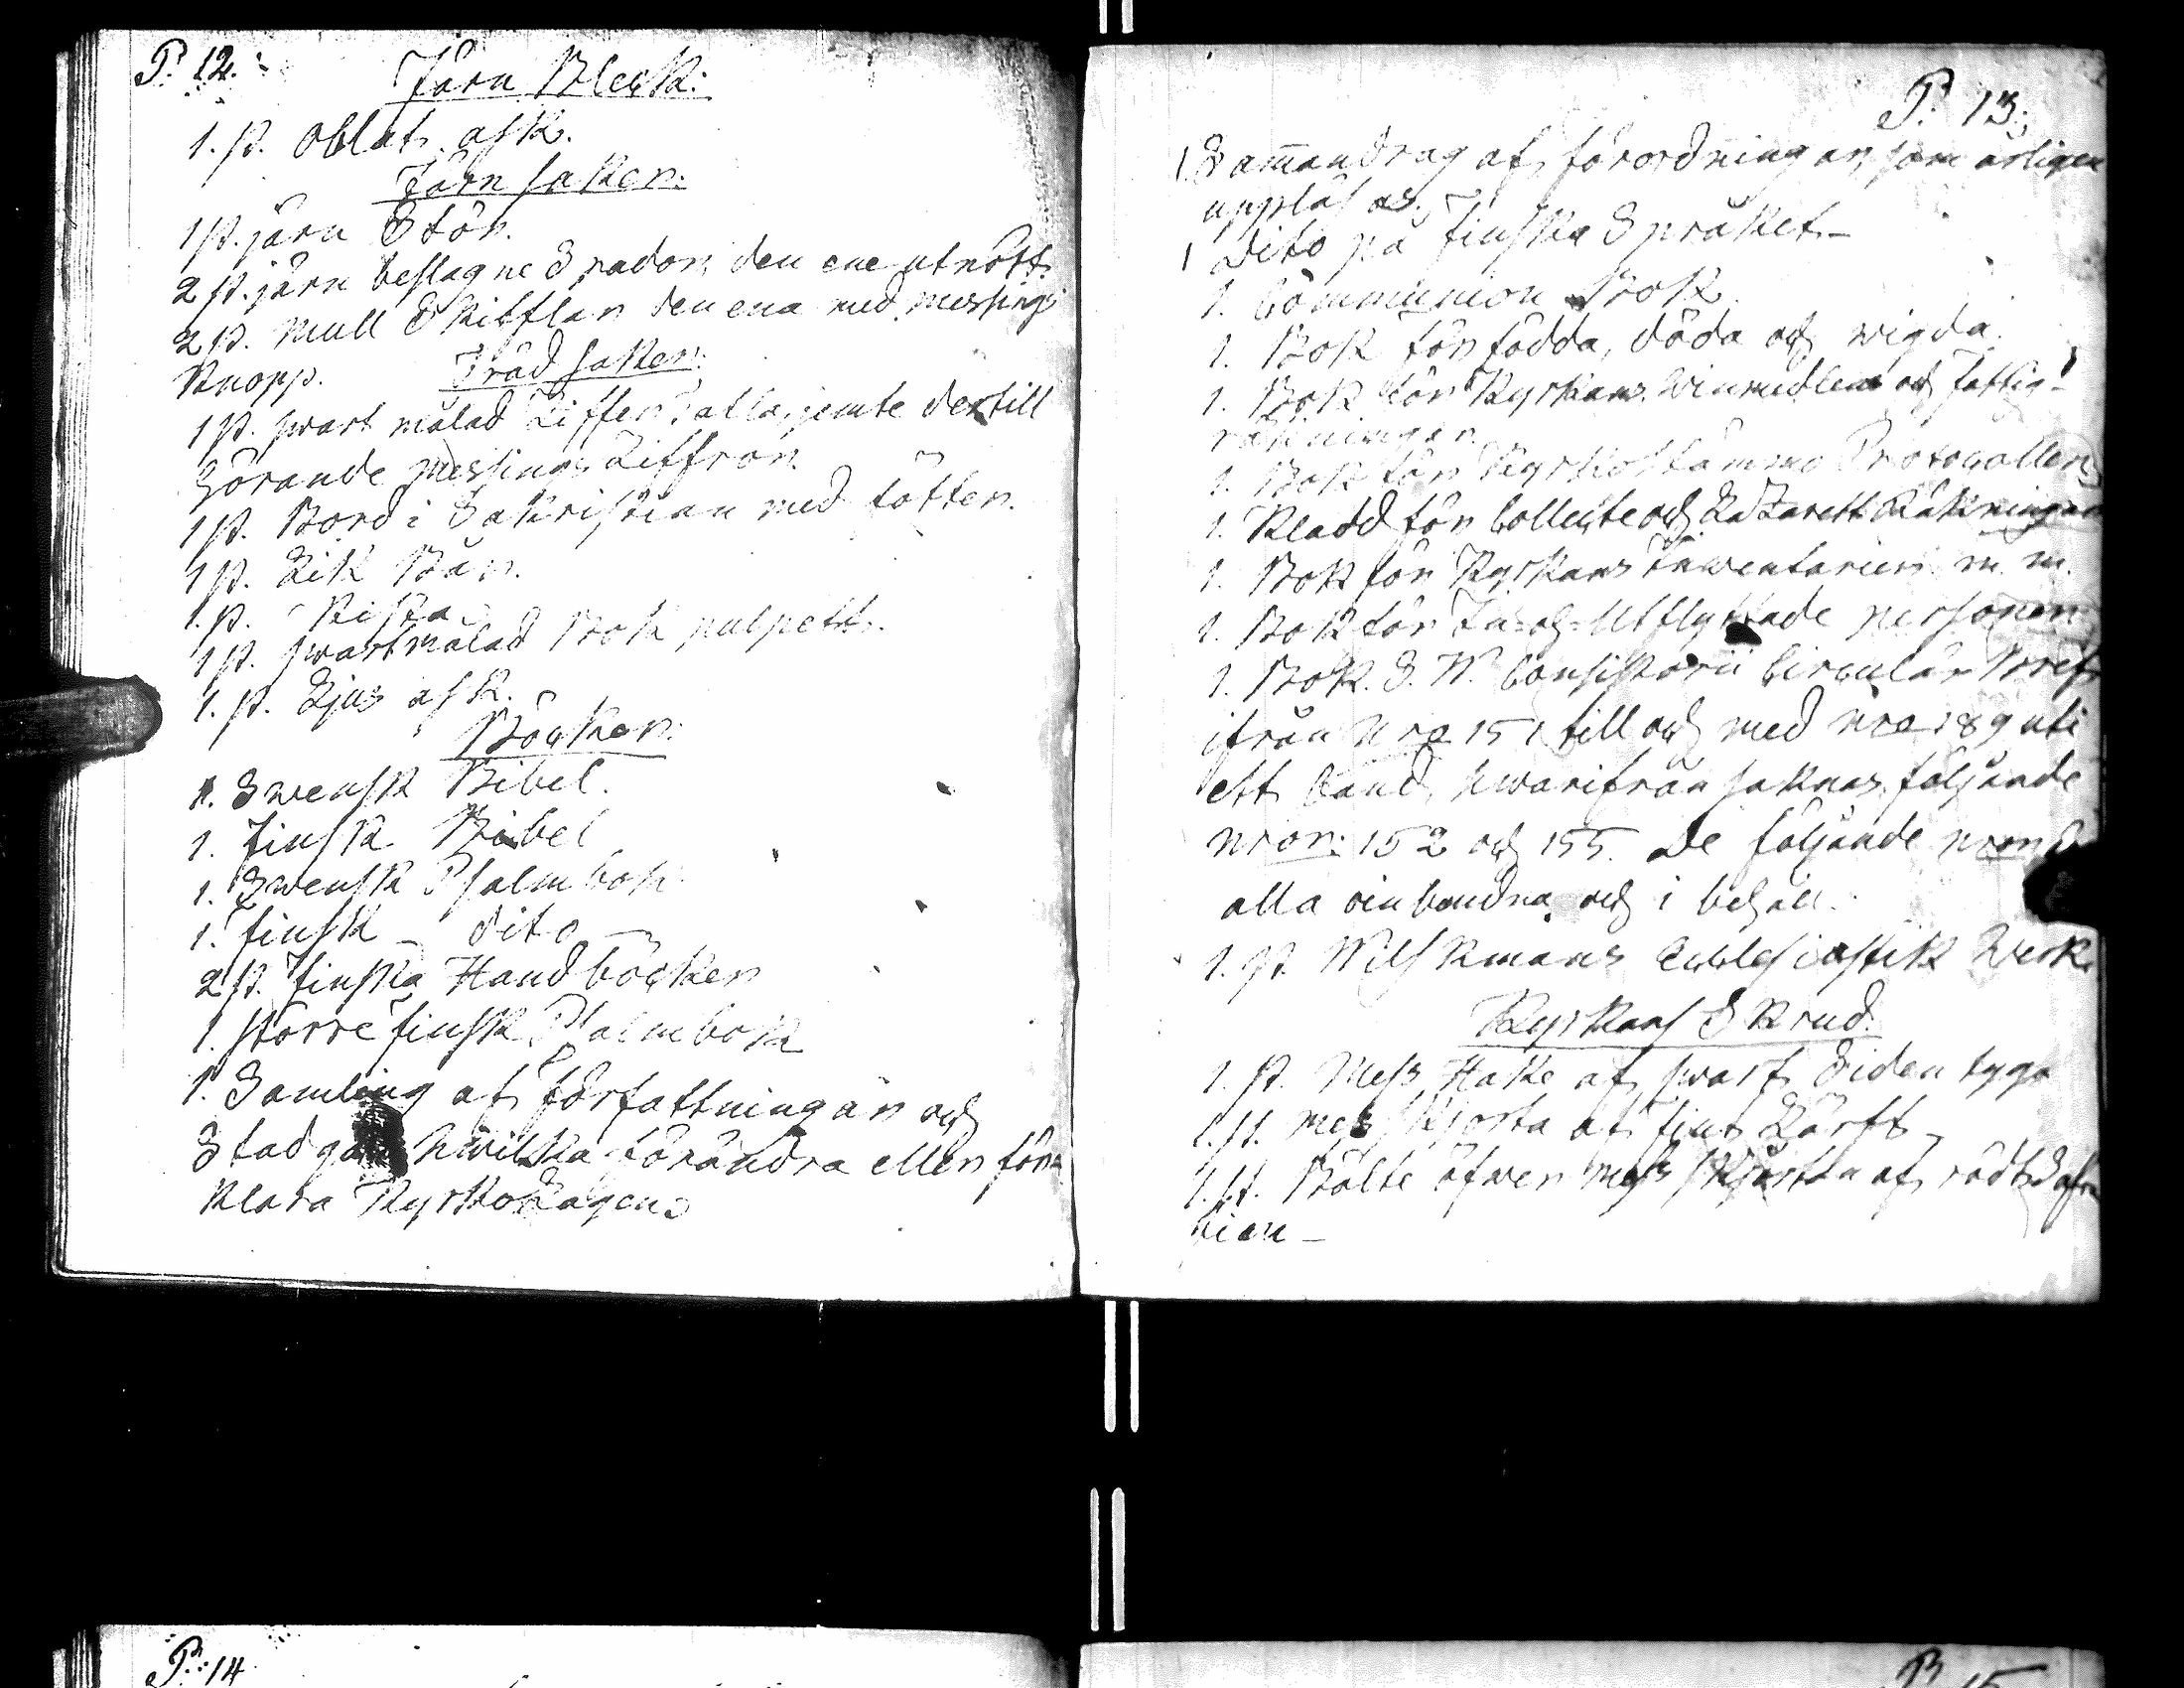 P: 12.
Järn Bleck:
1. st. Oblat ask.
Järn saker:
1 st. järn Stör.
2 st. järn beslagne Spador, den ene utnött.
2 st. Mull Skifflar den ena med messings
Knopp.
Träd saker:
1 st. swart målad Ziffer talla, jemte dertill
hörande messings Ziffror.
1 st. Bord i Sakristian med fötter.
1 st. Lik Bår.
1. st. Kista
1 st. swartmålad Bok pulpett.
1. st. Ljus ask.
Böcker:
1. Swensk Bibel.
1. Finsk Bibel
1. Swensk Psalmbok
1. finsk – dito –
2 st. finska Handböcker
1. större finsk Psalmbok
1. Samling af författningar och
Stadgar hwilka förändra eller för-
klara Kyrkolagen
P: 13.
1 Sam̄andrag af förordningar, som årligen
uppläsas.
1 Dito på Finska Språket –
1. Communion Bok
1. Bok för födda, döda och wigda.
1. Bok för Kyrkans, Winmedlens och fattig-
räkningar
1. Bok för Kyrkostämmo Protocoller
1. Kladd för Collecte och Lazaretts Räkningar
1. Bok för Kyrkans Inwentarier m. m.
1. Bok för In- och Utflyttade personer
1. Bok. S. W. Consistorii Circulär Bref
ifrån Nro 151 till och med Nro 189 uti
ett band, hwarifrån saknas följande
Nron: 152 och 155. De följande Nron
alla oinbundna och i behåll.
1. st. Wilskmans Ecclesiastik Werk
Kyrkans Skrud.
1. st. Mess Hake af swart Siden tyg
1. st. mess skjorta af fint Lärft
1. st. Bälte öfwer mess skjortan af rödt Saf-
fian –
P.: 14
P. 15